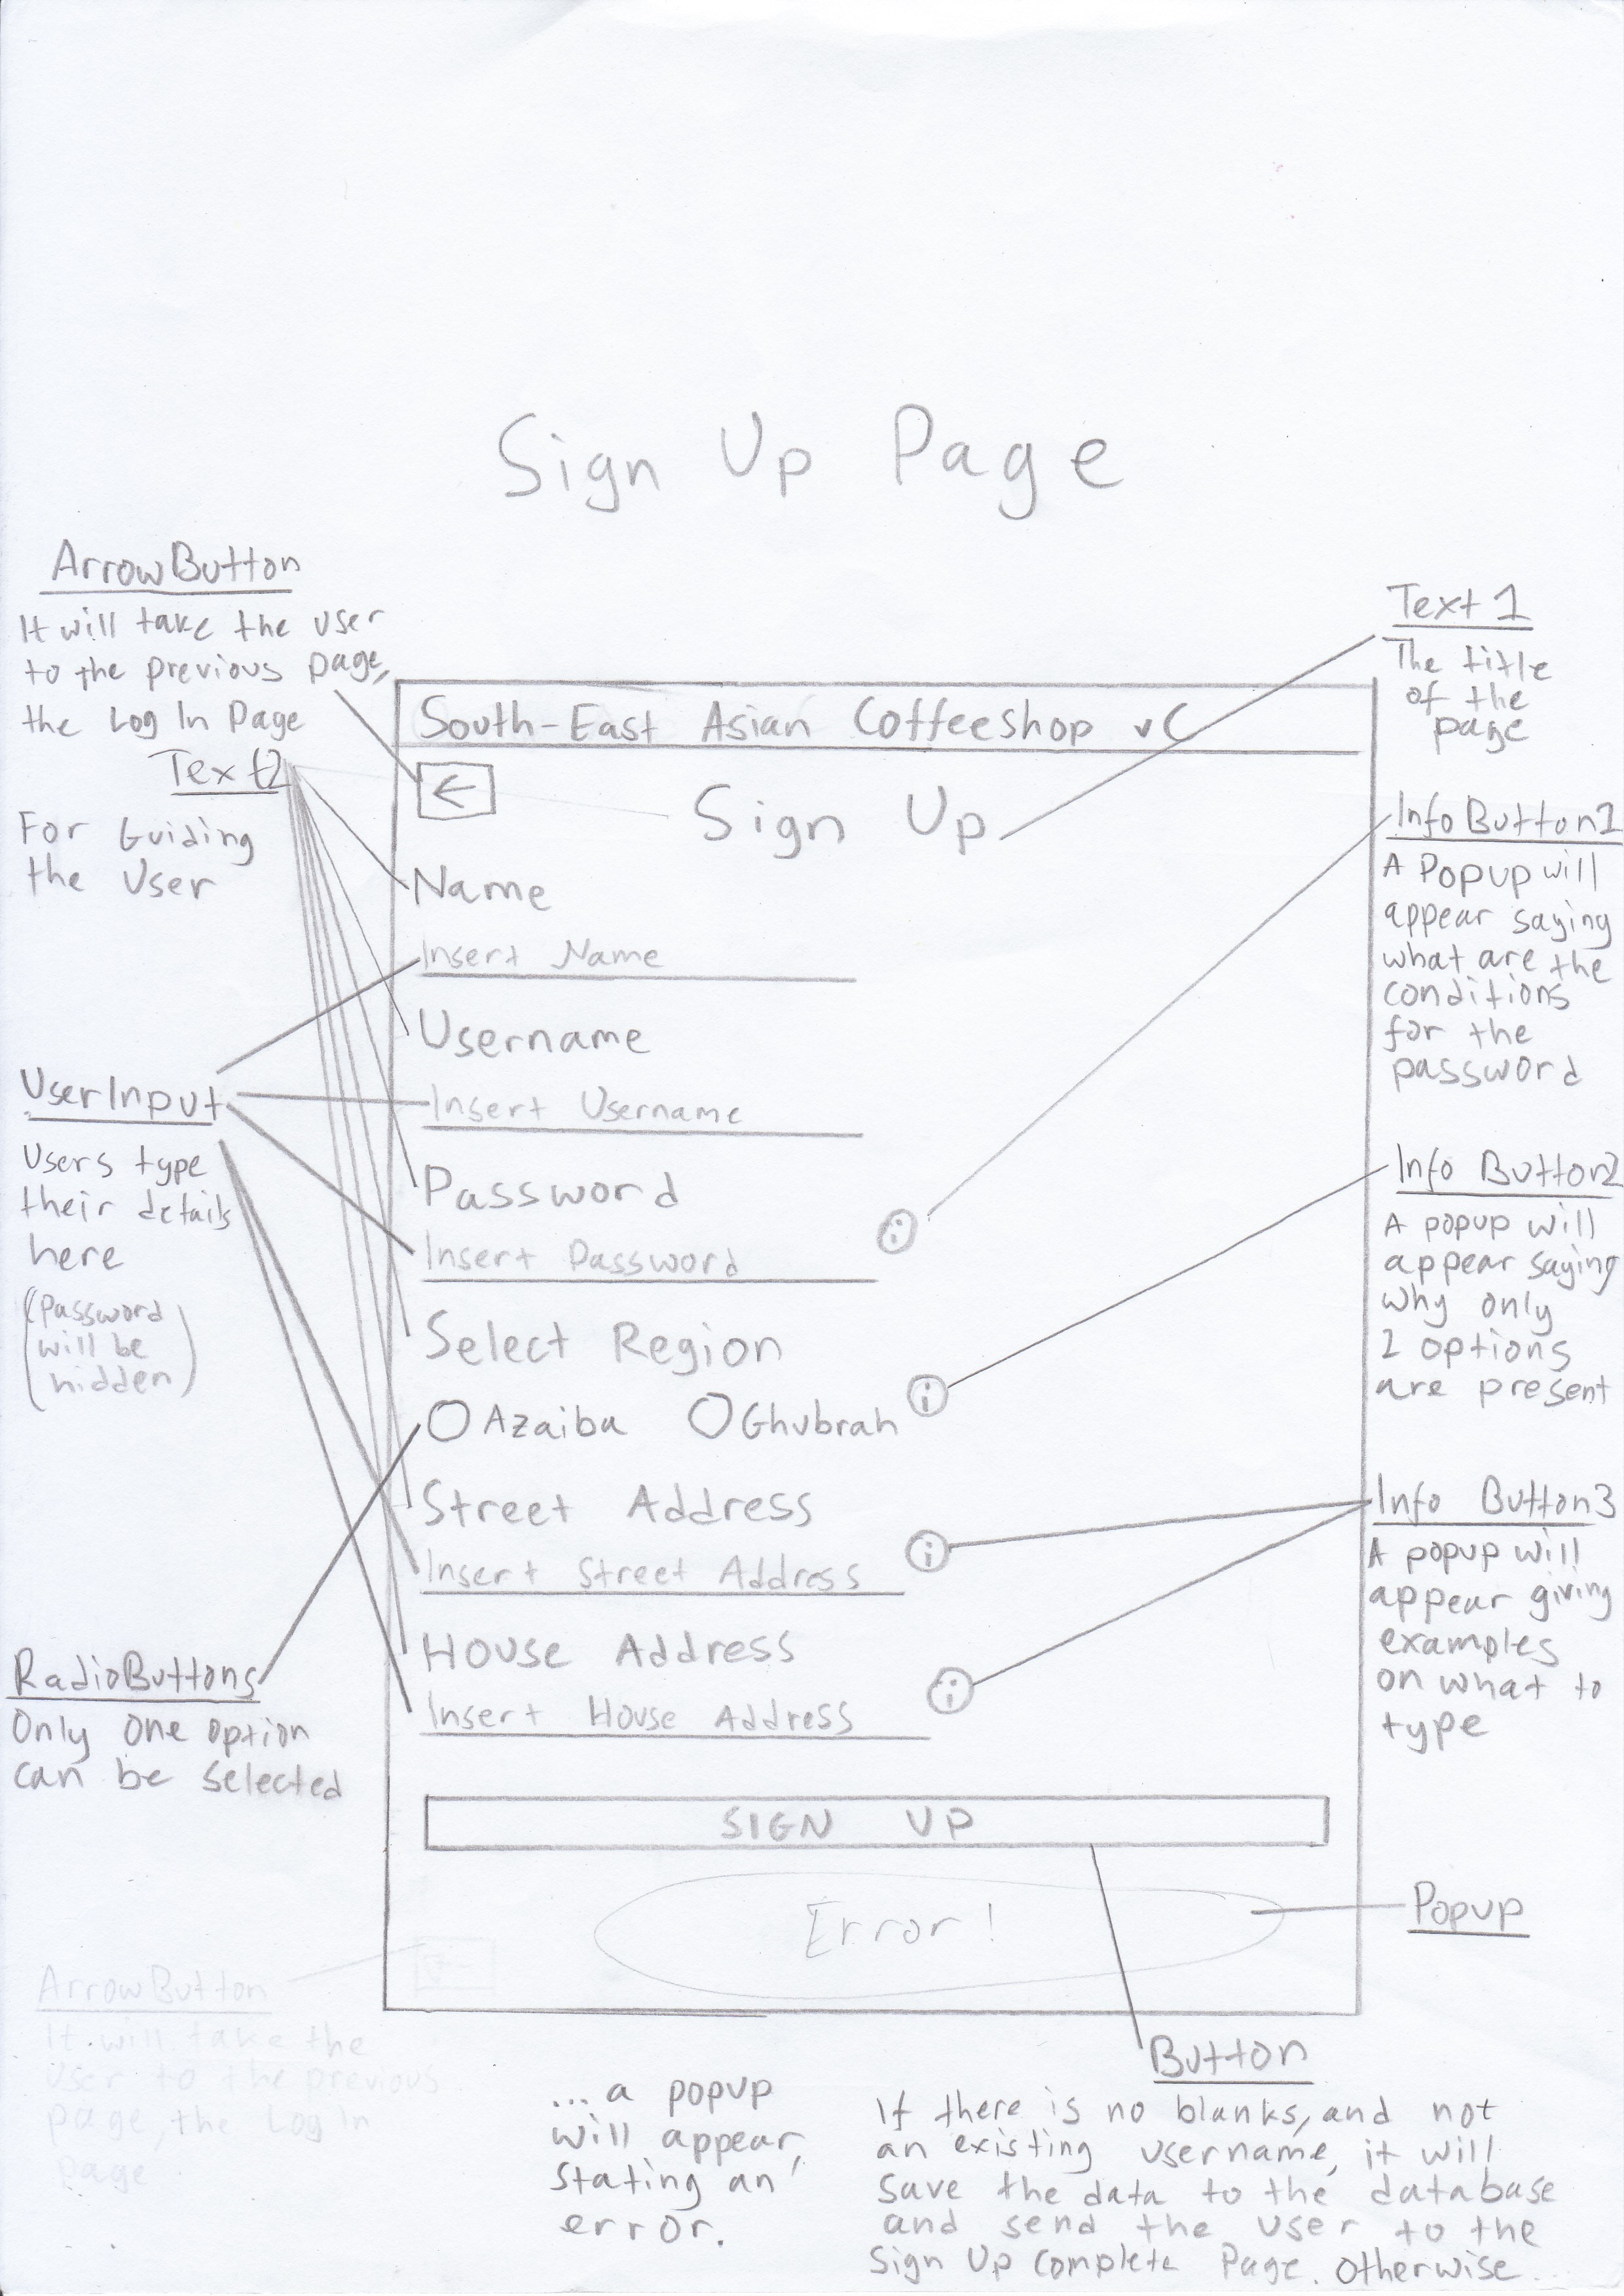 Sign Up Page
ArrowButton
It will take the user
to the previous page,
the Log In Page
Text2
For Guiding
the User
UserInput
Users type
their details
here
(Password
will be
hidden)
RadioButtons
Only one option
can be selected
South-East Asian Coffeeshop vC
←
Sign Up
Name
Insert Name
Username
Insert Username
Password
Insert Password
i
Select Region
Azaiba Ghubrah
i
Street Address
Insert Street Address
i
House Address
Insert House Address
i
SIGN UP
Error!
Text 1
The title
of the
page
Info Button1
A Popup will
appear saying
what are the
conditions
for the
password
Info Button2
A popup will
appear saying
why only
2 options
are present
Info Button3
A popup will
appear giving
examples
on what to
type
Popup
Button
If there is no blanks, and not
an existing username, it will
save the data to the database
and send the user to the
Sign Up Complete Page. Otherwise...
...a popup
will appear,
stating an
error.
ArrowButton
It will take the
user to the previous
page, the Log In
page